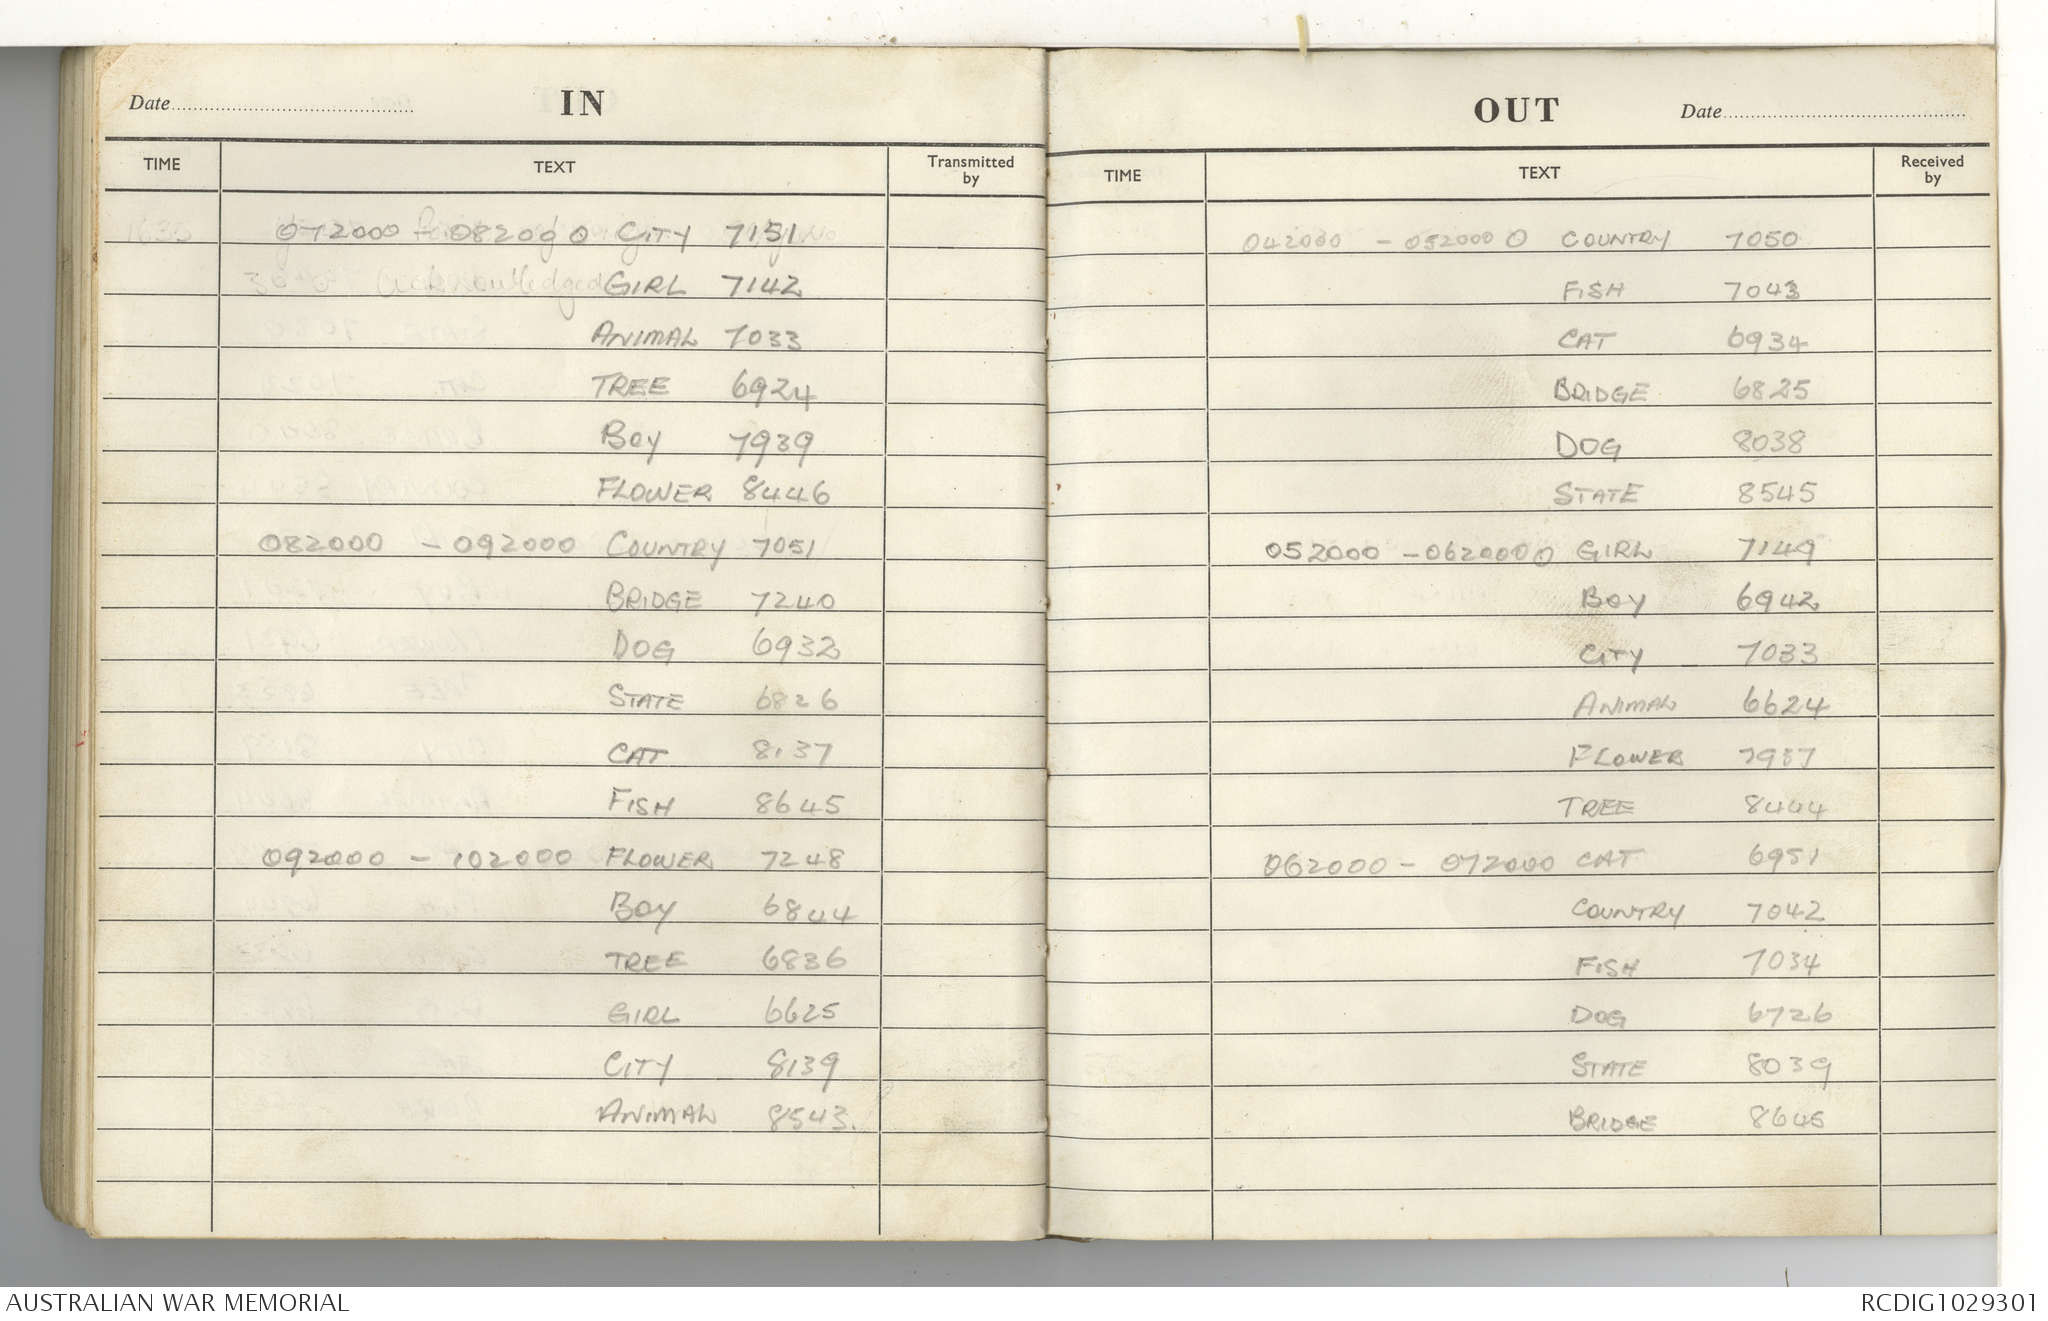 Date
IN
TIME TEXT Transmitted by
072000 - 082000 CITY 7151
GIRL 7142
ANIMAL 7033
TREE 6924
BOY 7939
FLOWER 8446
082000 - 092000 COUNTRY 7051
BRIDGE 7240
DOG 6932
STATE 6826
CAT 8137
FISH 8645
092000 - 102000 FLOWER 7248
BOY 6844
TREE 6836
GIRL 6625
CITY 8139
ANIMAL 8543.
OUT
Date
TIME TEXT Received by
042000 - 052000 COUNTRY 7050
FISH 7043
CAT 6934
BRIDGE 6825
DOG 8038
STATE 8545
052000 - 062000 GIRL 7149
BOY 6942
CITY 7033
ANIMAL 6624
FLOWER 7937
TREE 8444
062000 - 072000 CAT 6951
COUNTRY 7042
FISH 7034
DOG 6726
STATE 8039
BRIDGE 8645
AUSTRALIAN WAR MEMORIAL
RCDIG1029301